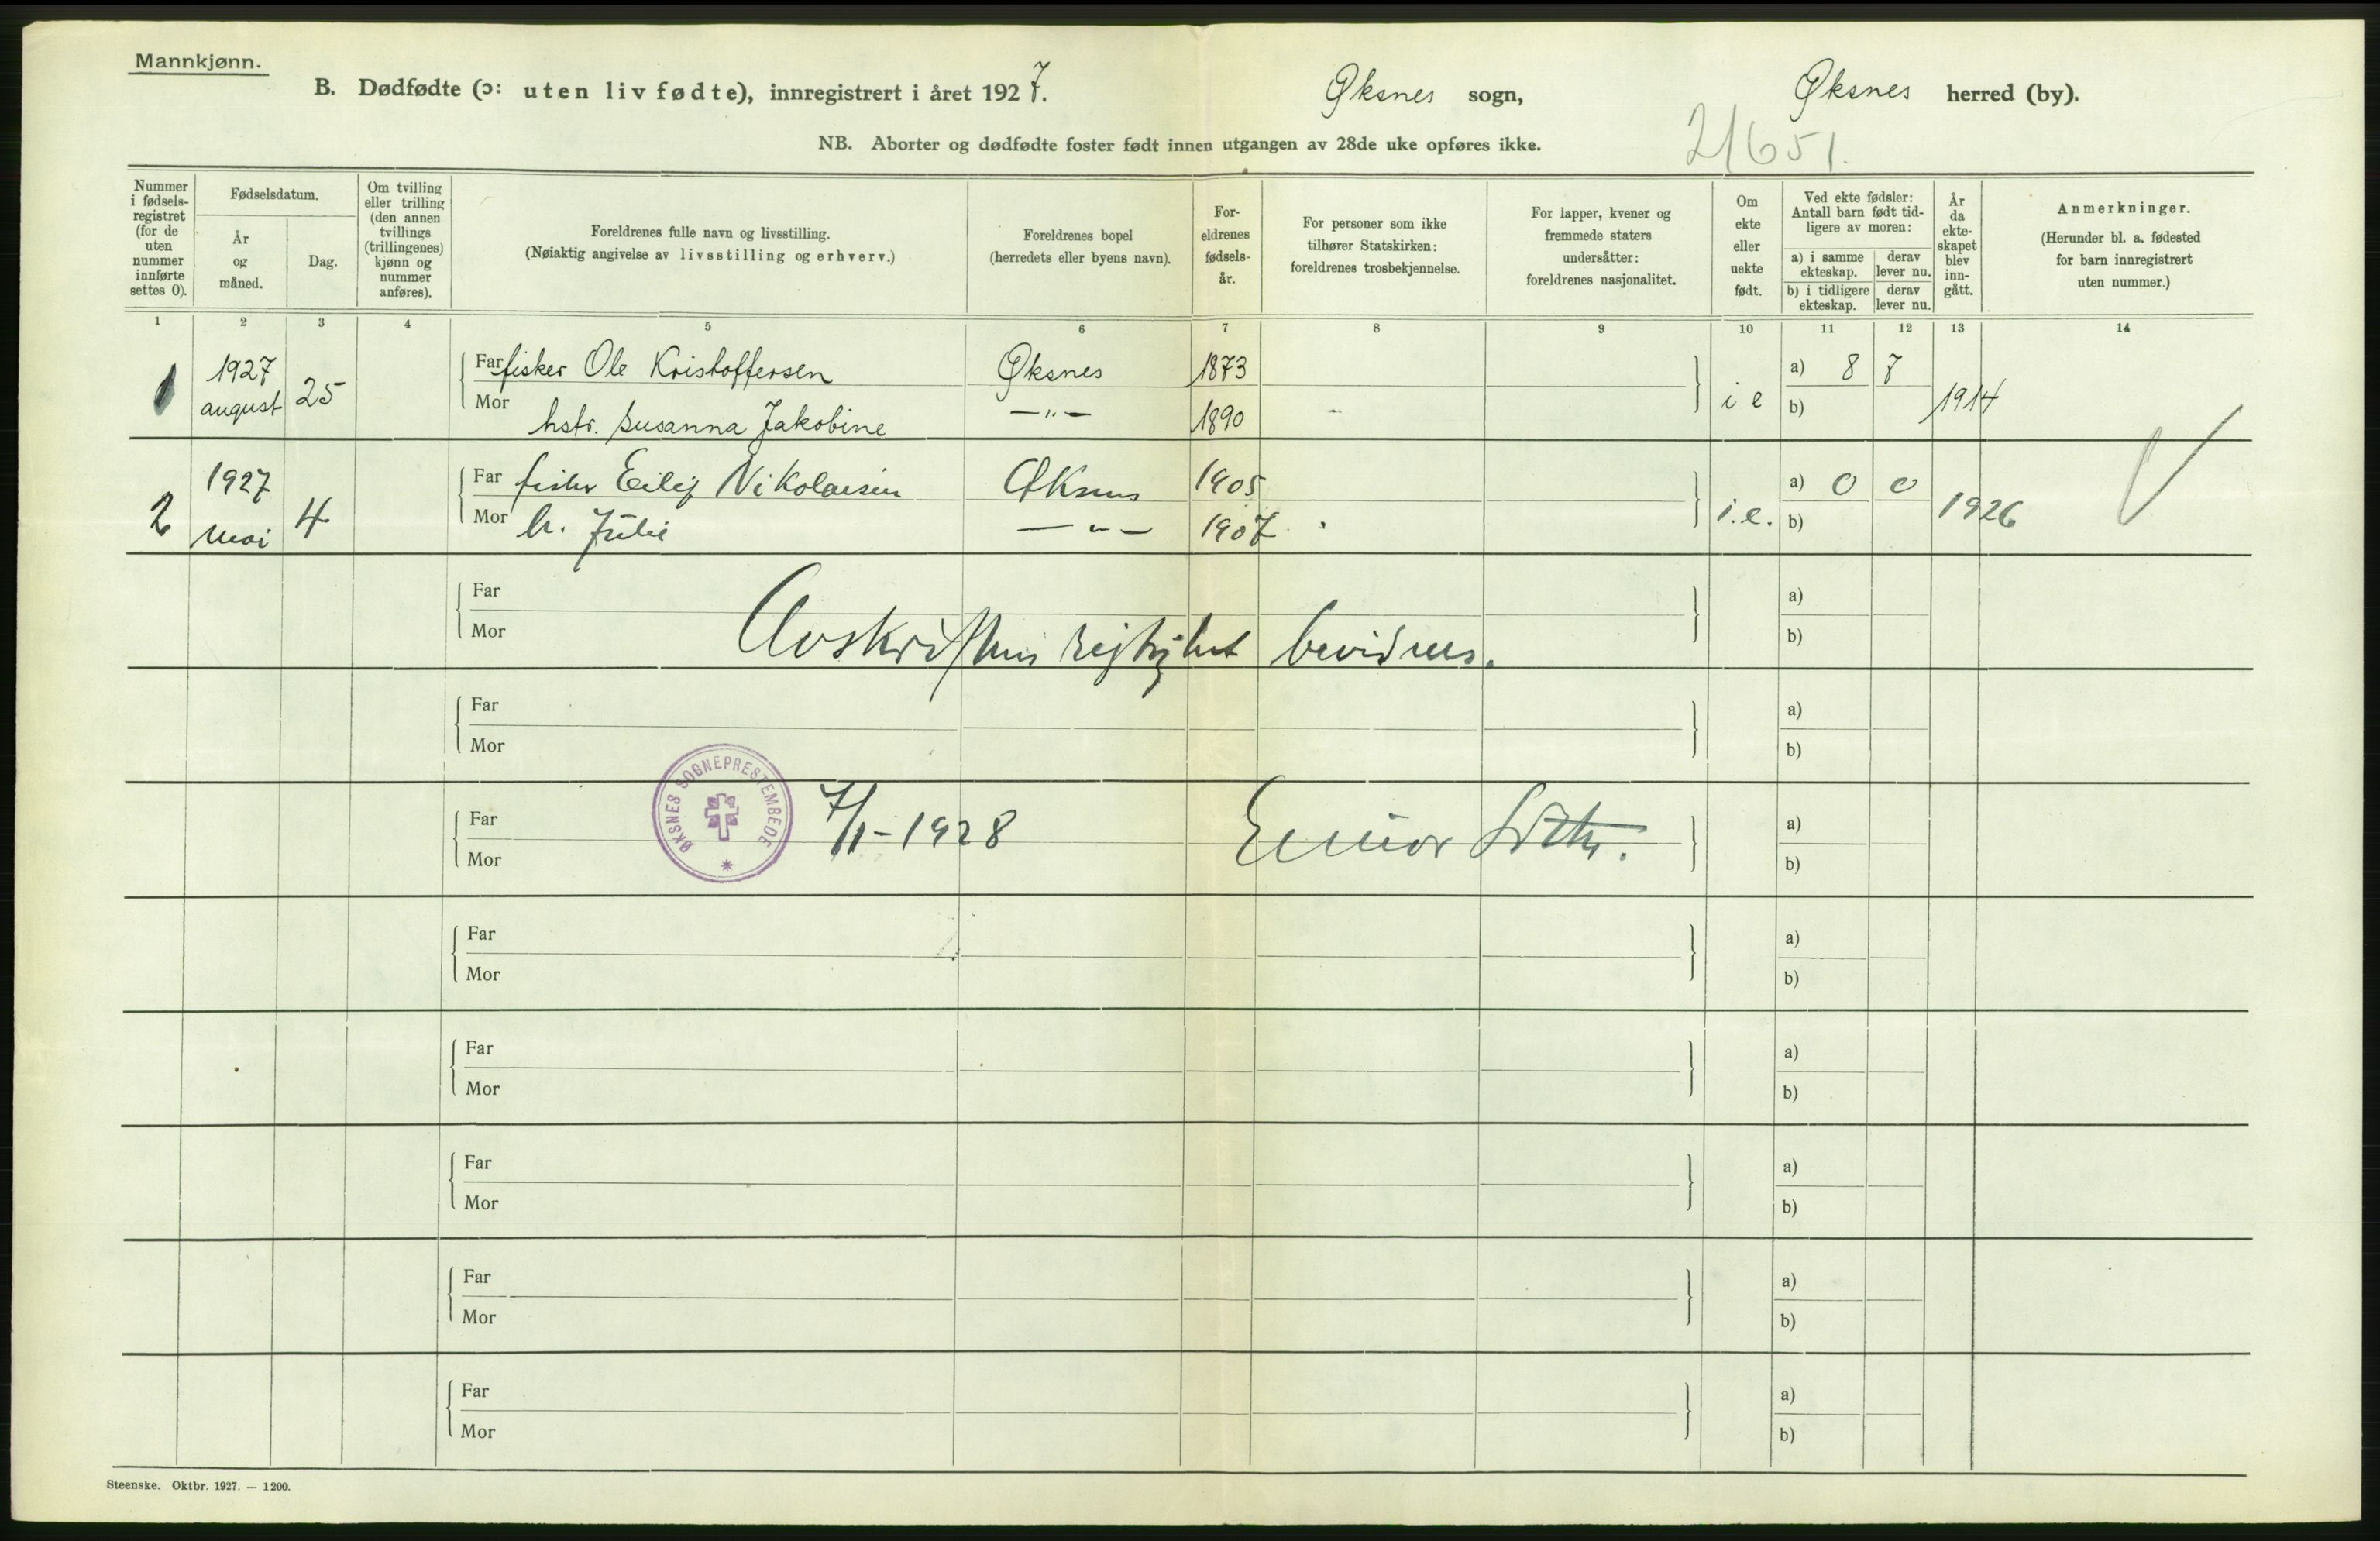 Mannkjønn.
B. Dødfødte (ɔ: uten liv fødte), innregistrert i året 1927. Øksnes sogn, Øksnes herred (by).
NB. Aborter og dødfødte foster født innen utgangen av 28de uke opføres ikke.
21651.
Nummer i fødselsregistret (for de uten nummer innførte settes 0).
Fødselsdatum.
År og måned.
Dag.
Om tvilling eller trilling (den annen tvillings (trillingenes) kjønn og nummer anføres).
Foreldrenes fulle navn og livsstilling.
(Nøiaktig angivelse av livsstilling og erhverv.)
Foreldrenes bopel
(herredets eller byens navn).
Foreldrenes fødselsår.
For personer som ikke tilhører Statskirken: foreldrenes trosbekjennelse.
For lapper, kvener og fremmede staters undersåtter: foreldrenes nasjonalitet.
Om ekte eller uekte født.
Ved ekte fødsler: Antall barn født tidligere av moren:
a) i samme ekteskap. derav lever nu.
b) i tidligere ekteskap. derav lever nu.
År da ekteskapet blev inngått.
Anmerkninger.
(Herunder bl. a. fødested for barn innregistrert uten nummer.)
1 2 3 4 5 6 7 8 9 10 11 12 13 14
1 1927 august 25 Far fisker Ole Kristoffersen Øksnes 1873 i e a) 8 7 1914
Mor hstr. Susanna Jakobine —"— 1890 b)
2 1927 mai 4 Far fisker Eilif Nikolaisen Øksnes 1905 i.e. a) 0 0 1926
Mor h. Julie —"— 1907 b)
Far a)
Mor b)
Avskriftens riktighet bevidnes.
Far a)
Mor b)
ØKSNES SOGNEPRESTEMBEDE
7/1-1928 Einar
Far a)
Mor b)
Far a)
Mor b)
Far a)
Mor b)
Far a)
Mor b)
Far a)
Mor b)
Far a)
Mor b)
Steenske. Oktbr. 1927. — 1200.